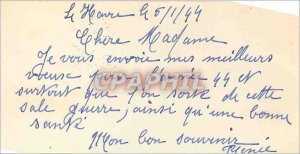 Le Havre le 5/1/44
Chère Madame
Je vous envoie mes meilleurs
voeux pour l'année 44 et
surtout que l'on sorte de cette
sale guerre, ainsi qu'une bonne
santé
Mon bon souvenir
Renée